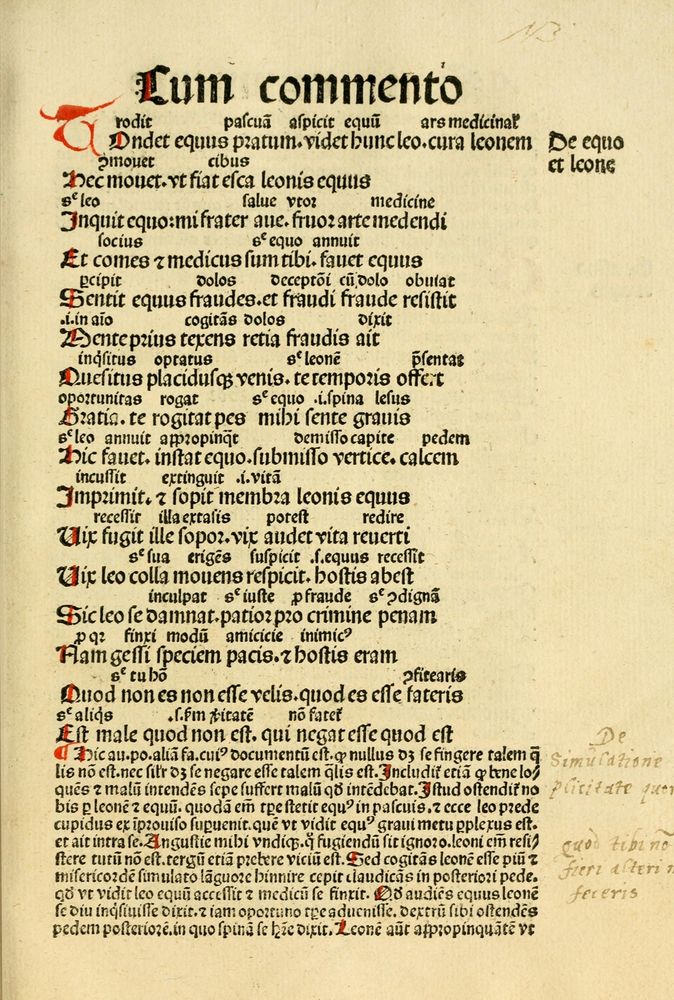 Cum commento
rodit pascuā aspicit equū ars medicinal'
TOndet equus pratum. videt hunc leo. cura leonem
De equo
et leone
ꝓmouet cibus
Hec mouet. vt fiat esca leonis equus
sᶜ leo salue vtor medicine
Inquit equo: mi frater aue. fruor arte medendi
socius sᶜ equo annuit
Et comes ⁊ medicus sum tibi. fauet equus
ꝑcipit dolos deceptōi cū dolo obuiat
Sentit equus fraudes. et fraudi fraude resistit
.i. in aīo cogitās dolos dixit
Mente prius texens retia fraudis ait
inq̄situs optatus sᶜ leonē p̄sentat
Quesitus placidusqꝫ venis. te temporis offert
oportunitas rogat sᶜ equo .i. spina lesus
Gratia. te rogitat pes mihi sente grauis
sᶜ leo annuit appropinq̄t demisso capite pedem
Hic fauet. instat equo. submisso vertice. calcem
incussit extinguit .i. vitā
Imprimit. ⁊ sopit membra leonis equus
recessit illa extasis potest redire
Uix fugit ille sopor. vix audet vita reuerti
sᶜ sua erigēs suspicit .s. equus recessit
Uix leo colla mouens respicit. hostis abest
inculpat sᶜ iuste ꝓ fraude sᶜ ↄdignā
Sic leo se damnat. patior pro crimine penam
ꝓ qꝛ finxi modū amicicie inimicꝰ
Nam gessi speciem pacis. ⁊ hostis eram
sᶜ tu hō ↄfitearis
Quod non es non esse velis. quod es esse fateris
sᶜ aliq̄s .s. km v̄itatē nō fatet'
Est male quod non est. qui negat esse quod est
¶ Hic au. po. aliā fa. cuiꝰ documentū est. ꝙ nullus dꝫ se fingere talem q̄
lis nō est. nec sil'r dꝫ se negare esse talem q̄lis est. Includit' etiā ꝙ bene lo/
quēs ⁊ malū intendēs sepe suffert malū qd̄ intēdebat. Istud ostendit' no
bis ꝑ leonē ⁊ equū. quodā em̄ tꝑe stetit equꝰ in pascuis. ⁊ ecce leo prede
cupidus ex īprouiso suꝑuenit. quē vt vidit equꝰ graui metu ꝑplexus est.
et ait intra se. Angustie mihi vndiqꝫ. q̄ fugiendū sit ignoro. leoni em̄ resi/
stere tutū nō est. tergū etiā prebere viciū est. Sed cogitās leonē esse piū ⁊
misericordē simulato lāguore hinnire cepit claudicās in posteriori pede.
qd̄ vt vidit leo equū accessit ⁊ medicū se finxit. Qd̄ audiēs equus leonē
se diu inq̄siuisse dixit. ⁊ iam oportuno tꝑe aduenisse. dextrū sibi ostendēs
pedem posteriorē. in quo spinā se hr̄e dixit. Leonē aūt appropinquātē vt
De
Simulatione
quod tibi nō
fieri alteri n
feceris